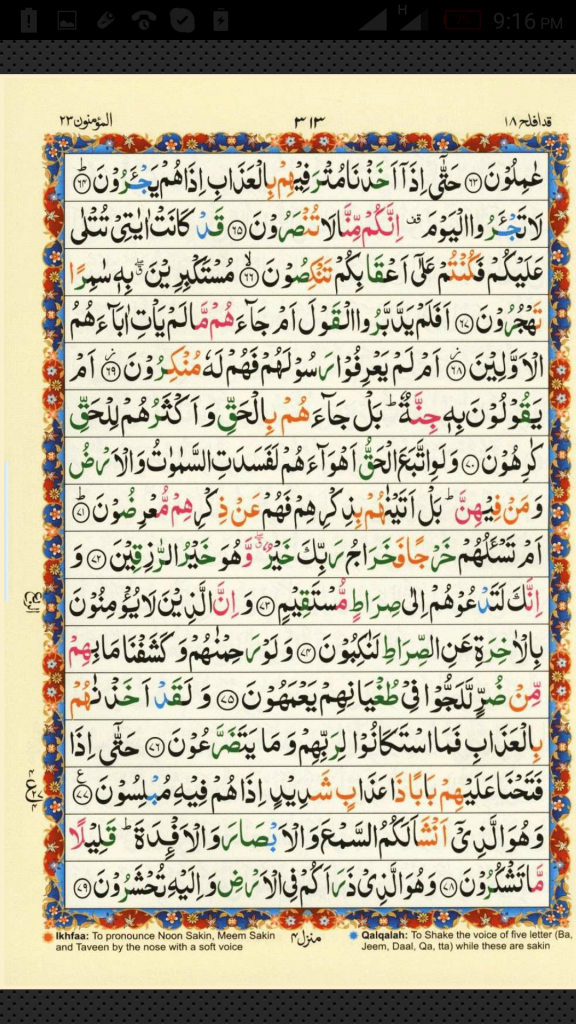 H 7% 9:16 PM
قد افلح ١٨ ٣١٣ المؤمنون ٢٣
عٰمِلُوۡنَ ﴿٦٣﴾ حَتّٰٓى اِذَاۤ اَخَذۡنَا مُتۡرَفِيۡهِمۡ بِالۡعَذَابِ اِذَا هُمۡ يَجۡـَٔرُوۡنَ ؕ﴿٦٤﴾
لَا تَجۡـَٔرُوا الۡيَوۡمَ ۟ اِنَّكُمۡ مِّنَّا لَا تُنۡصَرُوۡنَ ﴿٦٥﴾ قَدۡ كَانَتۡ اٰيٰتِىۡ تُتۡلٰى
عَلَيۡكُمۡ فَكُنۡتُمۡ عَلٰٓى اَعۡقَابِكُمۡ تَنۡكِصُوۡنَ ۙ﴿٦٦﴾ مُسۡتَكۡبِرِيۡنَ ۖ بِهٖ سٰمِرًا
تَهۡجُرُوۡنَ ﴿٦٧﴾ اَفَلَمۡ يَدَّبَّرُوا الۡقَوۡلَ اَمۡ جَآءَهُمۡ مَّا لَمۡ يَاۡتِ اٰبَآءَهُمُ
الۡاَوَّلِيۡنَ ﴿٦٨﴾ اَمۡ لَمۡ يَعۡرِفُوۡا رَسُوۡلَهُمۡ فَهُمۡ لَهٗ مُنۡكِرُوۡنَ ﴿٦٩﴾ اَمۡ
يَقُوۡلُوۡنَ بِهٖ جِنَّةٌ ؕ بَلۡ جَآءَهُمۡ بِالۡحَقِّ وَاَكۡثَرُهُمۡ لِلۡحَقِّ
كٰرِهُوۡنَ ﴿٧٠﴾ وَلَوِ اتَّبَعَ الۡحَقُّ اَهۡوَآءَهُمۡ لَفَسَدَتِ السَّمٰوٰتُ وَالۡاَرۡضُ
وَمَنۡ فِيۡهِنَّ ؕ بَلۡ اَتَيۡنٰهُمۡ بِذِكۡرِهِمۡ فَهُمۡ عَنۡ ذِكۡرِهِمۡ مُّعۡرِضُوۡنَ ؕ﴿٧١﴾
اَمۡ تَسۡـَٔلُهُمۡ خَرۡجًا فَخَرَاجُ رَبِّكَ خَيۡرٌ ۖ وَّهُوَ خَيۡرُ الرّٰزِقِيۡنَ ﴿٧٢﴾ وَ
اِنَّكَ لَتَدۡعُوۡهُمۡ اِلٰى صِرَاطٍ مُّسۡتَقِيۡمٍ ﴿٧٣﴾ وَاِنَّ الَّذِيۡنَ لَا يُؤۡمِنُوۡنَ
بِالۡاٰخِرَةِ عَنِ الصِّرَاطِ لَنٰكِبُوۡنَ ﴿٧٤﴾ وَلَوۡ رَحِمۡنٰهُمۡ وَكَشَفۡنَا مَا بِهِمۡ
مِّنۡ ضُرٍّ لَّلَجُّوۡا فِىۡ طُغۡيَانِهِمۡ يَعۡمَهُوۡنَ ﴿٧٥﴾ وَلَقَدۡ اَخَذۡنٰهُمۡ
بِالۡعَذَابِ فَمَا اسۡتَكَانُوۡا لِرَبِّهِمۡ وَمَا يَتَضَرَّعُوۡنَ ﴿٧٦﴾ حَتّٰٓى اِذَا
فَتَحۡنَا عَلَيۡهِمۡ بَابًا ذَا عَذَابٍ شَدِيۡدٍ اِذَا هُمۡ فِيۡهِ مُبۡلِسُوۡنَ ﴿٧٧﴾
وَهُوَ الَّذِىۡۤ اَنۡشَاَ لَكُمُ السَّمۡعَ وَالۡاَبۡصَارَ وَالۡاَفۡـِٕدَةَ ؕ قَلِيۡلًا
مَّا تَشۡكُرُوۡنَ ﴿٧٨﴾ وَهُوَ الَّذِىۡ ذَرَاَكُمۡ فِى الۡاَرۡضِ وَاِلَيۡهِ تُحۡشَرُوۡنَ ﴿٧٩﴾
Ikhfaa: To pronounce Noon Sakin, Meem Sakin
and Taveen by the nose with a soft voice
منزل ٤
Qalqalah: To Shake the voice of five letter (Ba,
Jeem, Daal, Qa, tta) while these are sakin